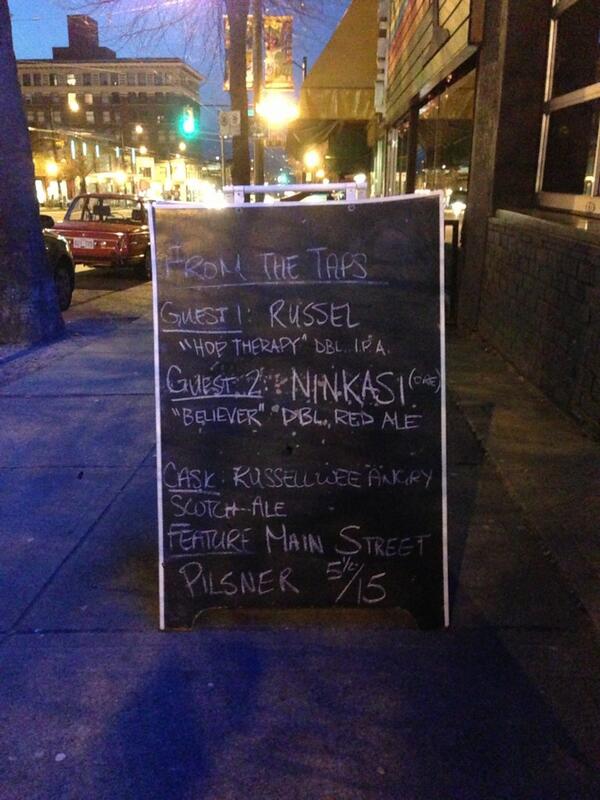 FROM THE TAPS
GUEST 1: RUSSEL
"HOP THERAPY" DBL. I.P.A.
GUEST 2: NINKASI (ORE)
"BELIEVER" DBL. RED ALE
CASK: RUSSELL WEE ANGRY
SCOTCH ALE
FEATURE MAIN STREET
PILSNER 5½/15